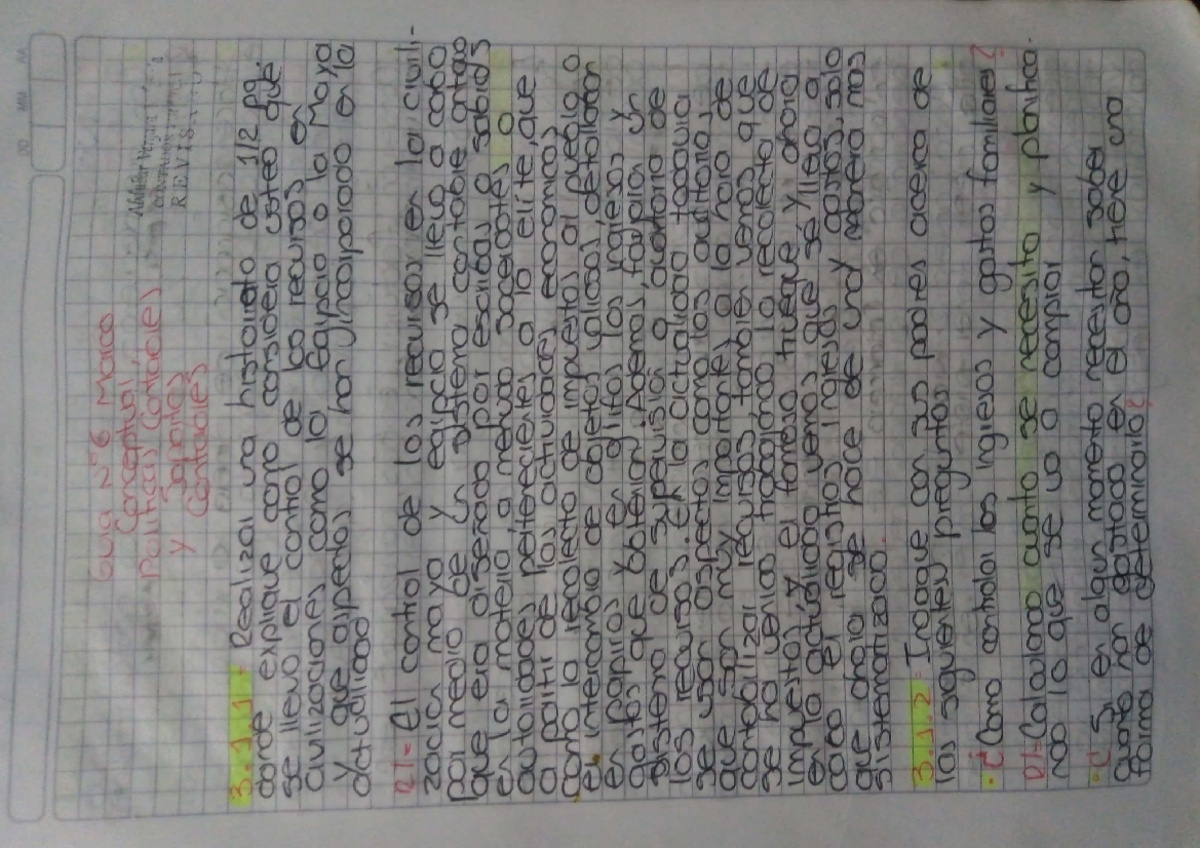 DD MM AA
Guia N°6 Marco
Conceptual,
Politicas Contables
y Soportes
Contables
REVIS
3.1.1. Realizar una historieta de 1/2 pg.
donde explique como considera usted que
se llevo el control de los recursos en
civilizaciones como la Egipcia o la Maya
y que aspectos se han incorporado en la
actualidad
R/= El control de los recursos en la civili-
zacion maya y egipcia se llevo a cabo
por medio de un sistema contable antao
que era diseñado por escribas o sabios
en la materia a menudo sacerdotes o
autoridades pertenecientes a la elite, que
a partir de las actividades economicas
como la recolecta de impuestos al pueblo o
el intercambio de objetos valiosos, detallaban
en papiros y en glifos los ingresos y
gastos que obtenian. Ademas, tambien un
sistema de supervision o auditoria de
los recursos. En la actualidad todavia
se usan aspectos como las auditorias,
que son muy importantes a la hora de
contabilizar recursos, tambien vemos que
se ha venido trabajando la recolecta de
impuestos y el famoso trueque y ahora
en la actualidad vemos que se lleva a
cabo el registro ingresos y gastos, solo
que ahora se hace de una manera mas
sistematizada.
3.1.2. Indague con sus padres acerca de
las siguientes preguntas
• ¿Como controlan los ingresos y gastos familiares?
R/= Calculando cuanto se necesita y planifica-
ndo lo que se va a comprar
• ¿Si en algun momento necesitan saber
cuanto han gastado en el año, tiene una
forma de determinarlo?